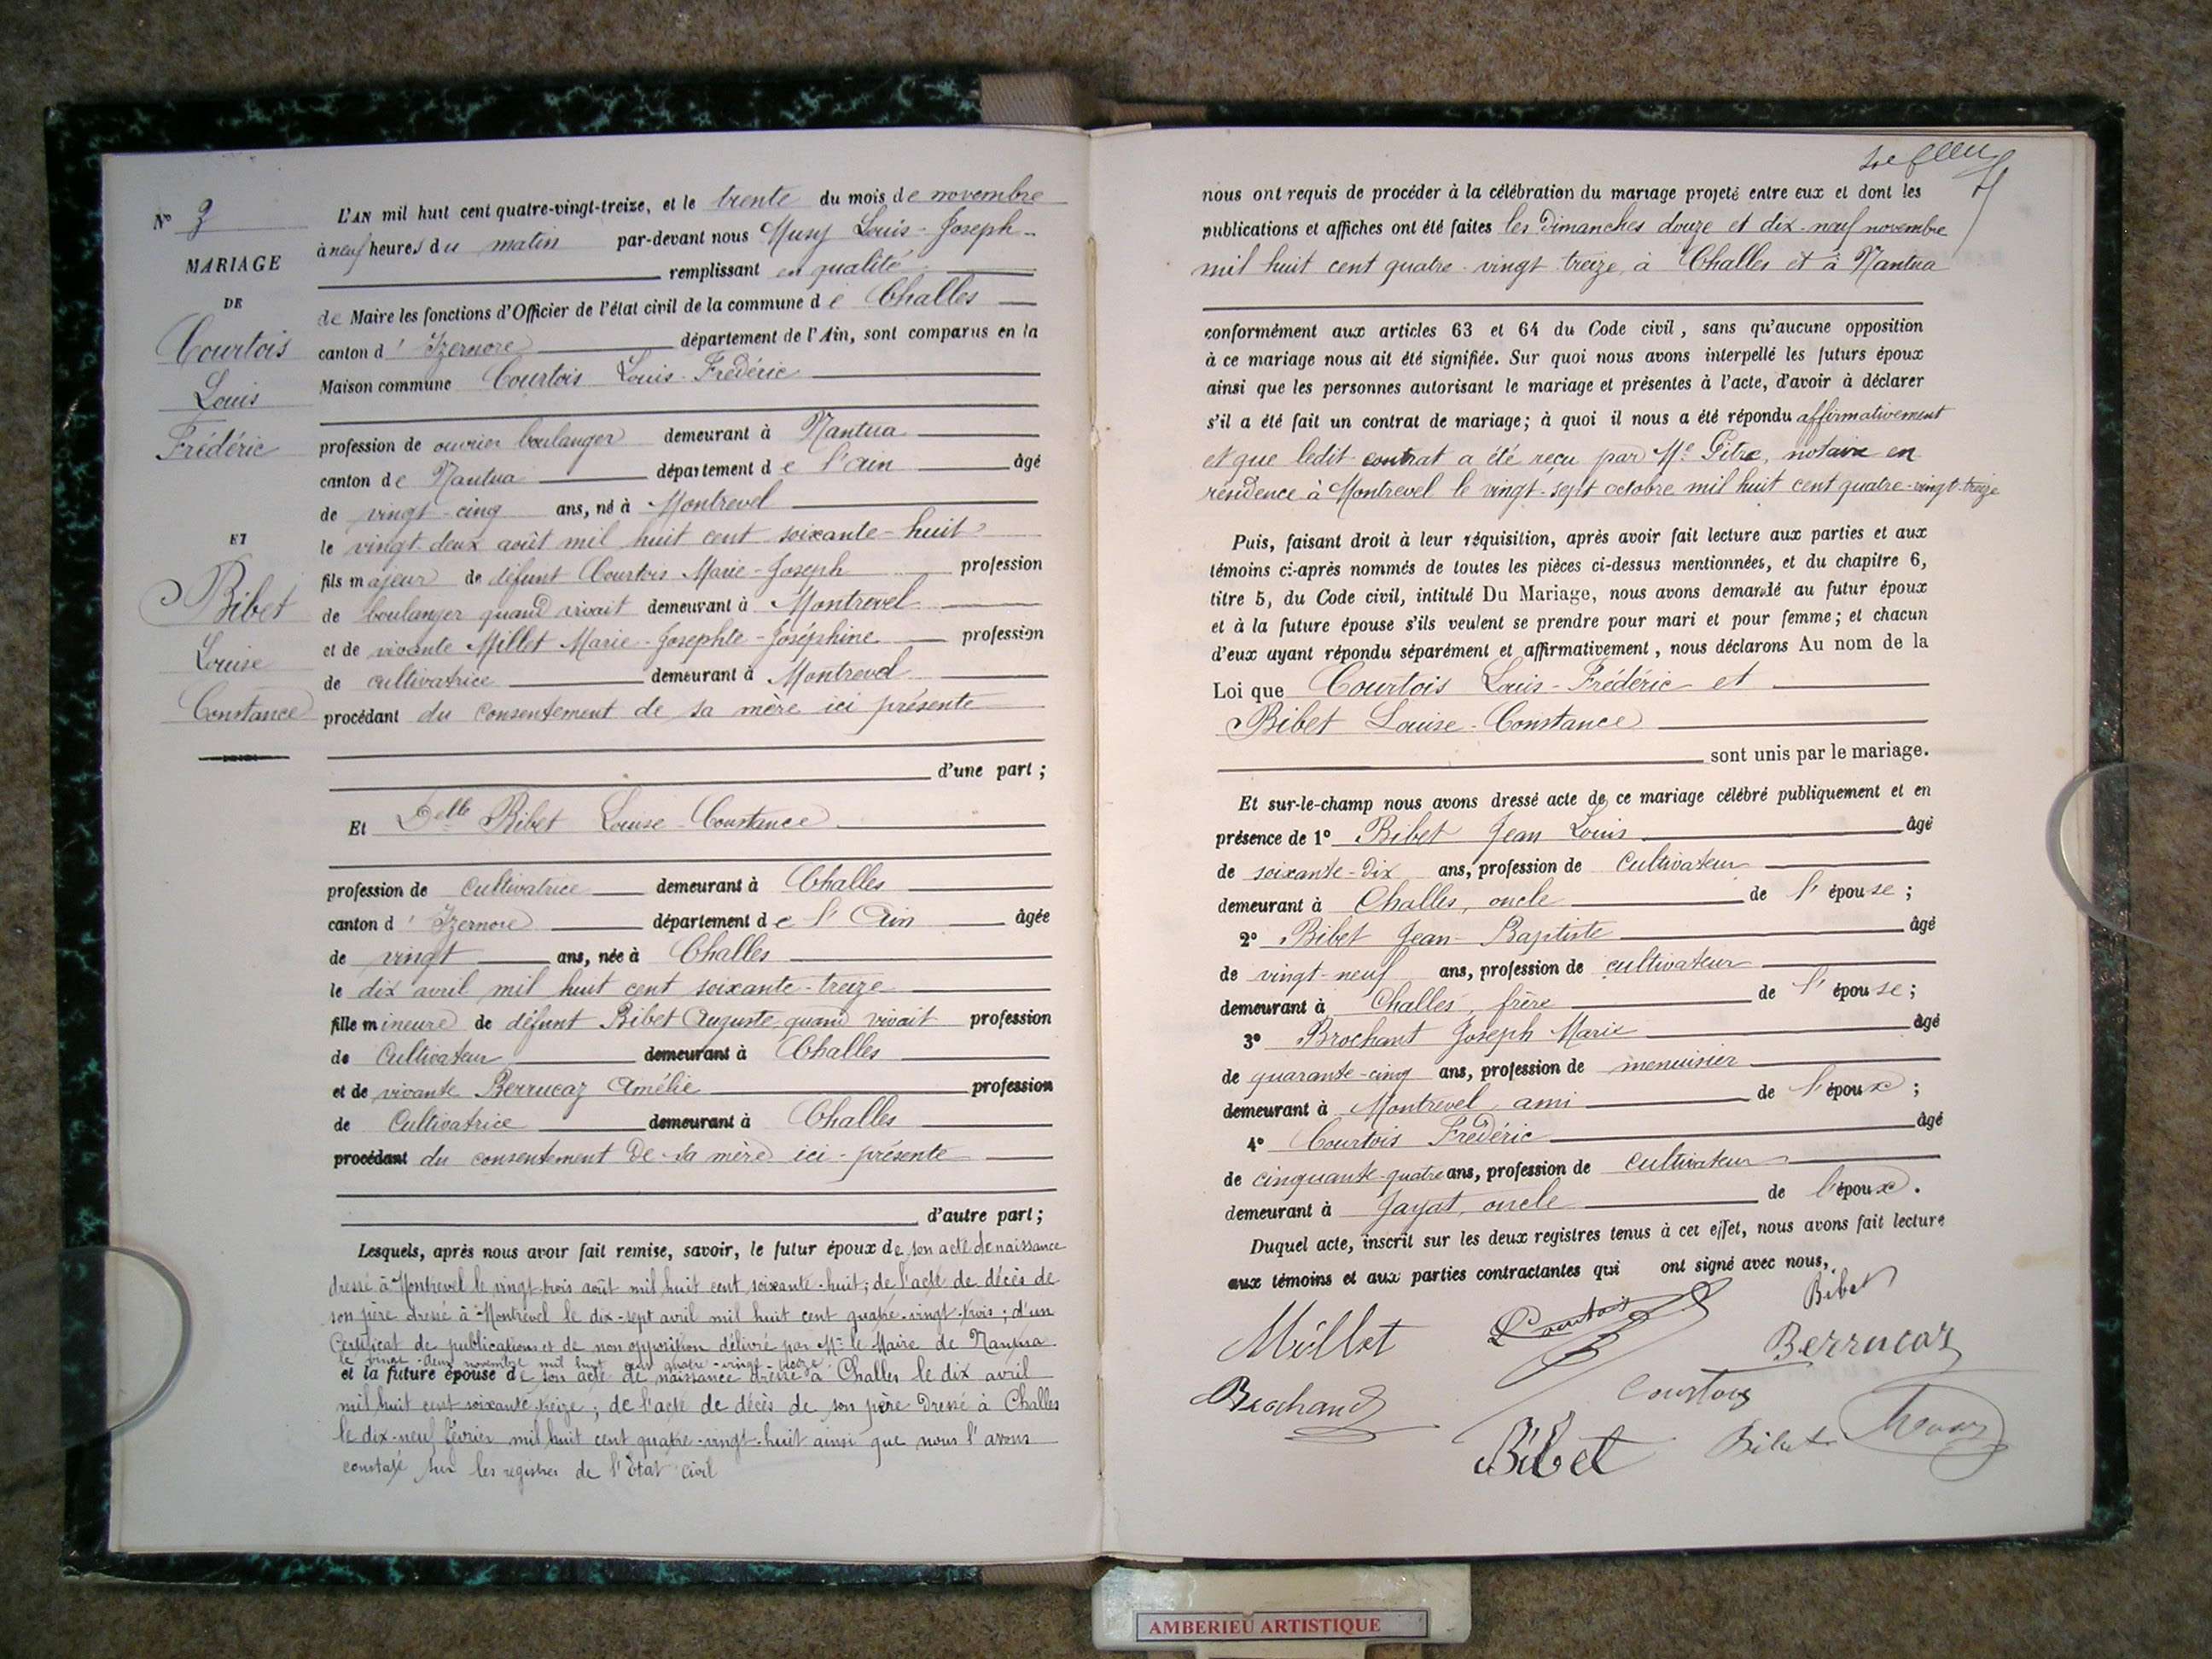 N° 3
MARIAGE
DE
Courtois
Louis
Frédéric
ET
Bibet
Louise
Constance
L'AN mil huit cent quatre-vingt-treize, et le trente du mois de novembre
à neuf heures du matin par-devant nous Musy Louis-Joseph
remplissant en qualité
de Maire les fonctions d'Officier de l'état civil de la commune de Challes
canton d'Izernore département de l'Ain, sont comparus en la
Maison commune Courtois Louis-Frédéric
profession de ouvrier boulanger demeurant à Nantua
canton de Nantua département de l'ain âgé
de vingt-cinq ans, né à Montrevel
le vingt-deux août mil huit cent soixante-huit
fils majeur de défunt Courtois Marie-Joseph profession
de boulanger quand vivait demeurant à Montrevel
et de vivante Millet Marie-Josephte-Joséphine profession
de cultivatrice demeurant à Montrevel
procédant du consentement de sa mère ici présente
d'une part ;
Et Delle Bibet Louise-Constance
profession de Cultivatrice demeurant à Challes
canton d'Izernore département de l'Ain âgée
de vingt ans, née à Challes
le dix avril mil huit cent soixante-treize
fille mineure de défunt Bibet Auguste, quand vivait profession
de Cultivateur demeurant à Challes
et de vivante Berrucaz Amélie profession
de Cultivatrice demeurant à Challes
procédant du consentement de sa mère ici-présente
d'autre part ;
Lesquels, après nous avoir fait remise, savoir, le futur époux de son acte de naissance
dressé à Montrevel le vingt-trois août mil huit cent soixante-huit ; de l'acte de décès de
son père dressé à Montrevel le dix-sept avril mil huit cent quatre-vingt-trois ; d'un
Certificat de publications et de non opposition délivré par Mr le Maire de Nantua
le vingt-deux novembre mil huit cent quatre-vingt-treize
et la future épouse de son acte de naissance dressé à Challes le dix avril
mil huit cent soixante-treize ; de l'acte de décès de son père dressé à Challes
le dix-neuf février mil huit cent quatre-vingt-huit ainsi que nous l'avons
constaté sur les registres de l'Etat civil
nous ont requis de procéder à la célébration du mariage projeté entre eux et dont les
publications et affiches ont été faites les Dimanches douze et dix-neuf novembre
mil huit cent quatre-vingt-treize, à Challes et à Nantua
conformément aux articles 63 et 64 du Code civil, sans qu'aucune opposition
à ce mariage nous ait été signifiée. Sur quoi nous avons interpellé les futurs époux
ainsi que les personnes autorisant le mariage et présentes à l'acte, d'avoir à déclarer
s'il a été fait un contrat de mariage ; à quoi il nous a été répondu affirmativement
et que ledit contrat a été reçu par Me Pitre, notaire en
résidence à Montrevel le vingt-sept octobre mil huit cent quatre-vingt-treize
Puis, faisant droit à leur réquisition, après avoir fait lecture aux parties et aux
témoins ci-après nommés de toutes les pièces ci-dessus mentionnées, et du chapitre 6,
titre 5, du Code civil, intitulé Du Mariage, nous avons demandé au futur époux
et à la future épouse s'ils veulent se prendre pour mari et pour femme ; et chacun
d'eux ayant répondu séparément et affirmativement, nous déclarons Au nom de la
Loi que Courtois Louis-Frédéric et
Bibet Louise-Constance
sont unis par le mariage.
Et sur-le-champ nous avons dressé acte de ce mariage célébré publiquement et en
présence de 1° Bibet Jean Louis âgé
de soixante-dix ans, profession de Cultivateur
demeurant à Challes, oncle de l'épouse ;
2° Bibet Jean-Baptiste âgé
de vingt-neuf ans, profession de cultivateur
demeurant à Challes, frère de l'épouse ;
3° Brochant Joseph Marie âgé
de quarante-cinq ans, profession de menuisier
demeurant à Montrevel, ami de l'époux ;
4° Courtois Frédéric âgé
de cinquante-quatre ans, profession de Cultivateur
demeurant à Jayat, oncle de l'époux.
Duquel acte, inscrit sur les deux registres tenus à cet effet, nous avons fait lecture
aux témoins et aux parties contractantes qui ont signé avec nous,
Bibet
Millet Courtois
Berrucaz
Brochand Courtois
Bibet Bibet
AMBERIEU ARTISTIQUE